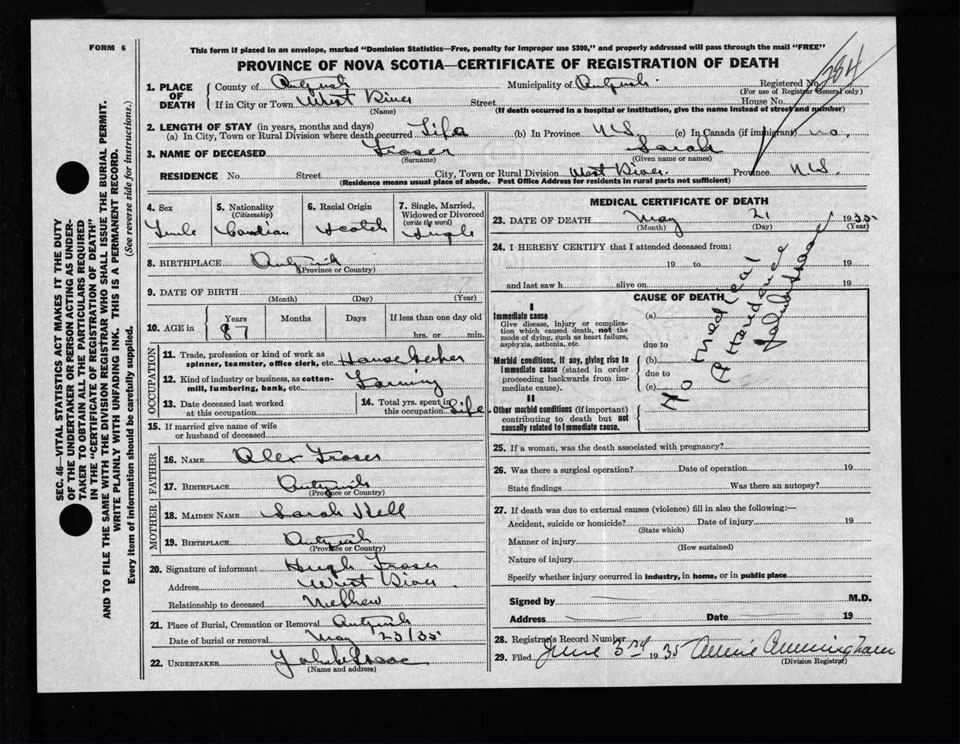 FORM 6
This form if placed in an envelope, marked "Dominion Statistics—Free, penalty for improper use $300," and properly addressed will pass through the mail "FREE"
PROVINCE OF NOVA SCOTIA—CERTIFICATE OF REGISTRATION OF DEATH
SEC. 46—VITAL STATISTICS ACT MAKES IT THE DUTY
OF THE UNDERTAKER OR PERSON ACTING AS UNDER-
TAKER TO OBTAIN ALL THE PARTICULARS REQUIRED
IN THE "CERTIFICATE OF REGISTRATION OF DEATH"
AND TO FILE THE SAME WITH THE DIVISION REGISTRAR WHO SHALL ISSUE THE BURIAL PERMIT.
WRITE PLAINLY WITH UNFADING INK. THIS IS A PERMANENT RECORD.
Every item of information should be carefully supplied. (See reverse side for instructions.)
1. PLACE OF DEATH County of Antgnish Municipality of Antgnish Registered No. 284
(For use of Registrar General only)
If in City or Town West River Street House No.
(Name) (If death occurred in a hospital or institution, give the name instead of street and number)
2. LENGTH OF STAY (in years, months and days)
(a) In City, Town or Rural Division where death occurred Life (b) In Province N.S. (c) In Canada (if immigrant) no.
3. NAME OF DECEASED Fraser Sarah
(Surname) (Given name or names)
RESIDENCE No. Street City, Town or Rural Division West River Province N.S.
(Residence means usual place of abode. Post Office Address for residents in rural parts not sufficient)
4. Sex Female
5. Nationality (Citizenship) Canadian
6. Racial Origin Scotch
7. Single, Married, Widowed or Divorced (write the word) Single
8. BIRTHPLACE Antgnish
(Province or Country)
9. DATE OF BIRTH
(Month) (Day) (Year)
10. AGE in Years 87 Months Days If less than one day old hrs. or min.
OCCUPATION
11. Trade, profession or kind of work as spinner, teamster, office clerk, etc. House keeper
12. Kind of industry or business, as cotton-mill, lumbering, bank, etc. Farming
13. Date deceased last worked at this occupation
14. Total yrs. spent in this occupation Life
15. If married give name of wife or husband of deceased
FATHER
16. NAME Alex Fraser
17. BIRTHPLACE Antgnish
(Province or Country)
MOTHER
18. MAIDEN NAME Sarah Bell
19. BIRTHPLACE Antgnish
(Province or Country)
20. Signature of informant Hugh Fraser
Address West River
Relationship to deceased Nephew
21. Place of Burial, Cremation or Removal Antgnish
Date of burial or removal May 23/35
22. UNDERTAKER
(Name and address)
MEDICAL CERTIFICATE OF DEATH
23. DATE OF DEATH May 21 1935
(Month) (Day) (Year)
24. I HEREBY CERTIFY that I attended deceased from:
19 to 19
and last saw h alive on 19
CAUSE OF DEATH
I
Immediate cause
Give disease, injury or complication which caused death, not the mode of dying, such as heart failure, asphyxia, asthenia, etc.
(a)
due to
Morbid conditions, if any, giving rise to immediate cause (stated in order proceeding backwards from immediate cause).
(b)
due to
(c)
II
Other morbid conditions (if important) contributing to death but not causally related to immediate cause.
No medical
Attendance
25. If a woman, was the death associated with pregnancy?
26. Was there a surgical operation? Date of operation 19
State findings Was there an autopsy?
27. If death was due to external causes (violence) fill in also the following:—
Accident, suicide or homicide? Date of injury 19
(State which)
Manner of injury
(How sustained)
Nature of injury
Specify whether injury occurred in industry, in home, or in public place
Signed by M.D.
Address Date 19
28. Registrar's Record Number
29. Filed June 3rd 1935 Annie Cunningham
(Division Registrar)